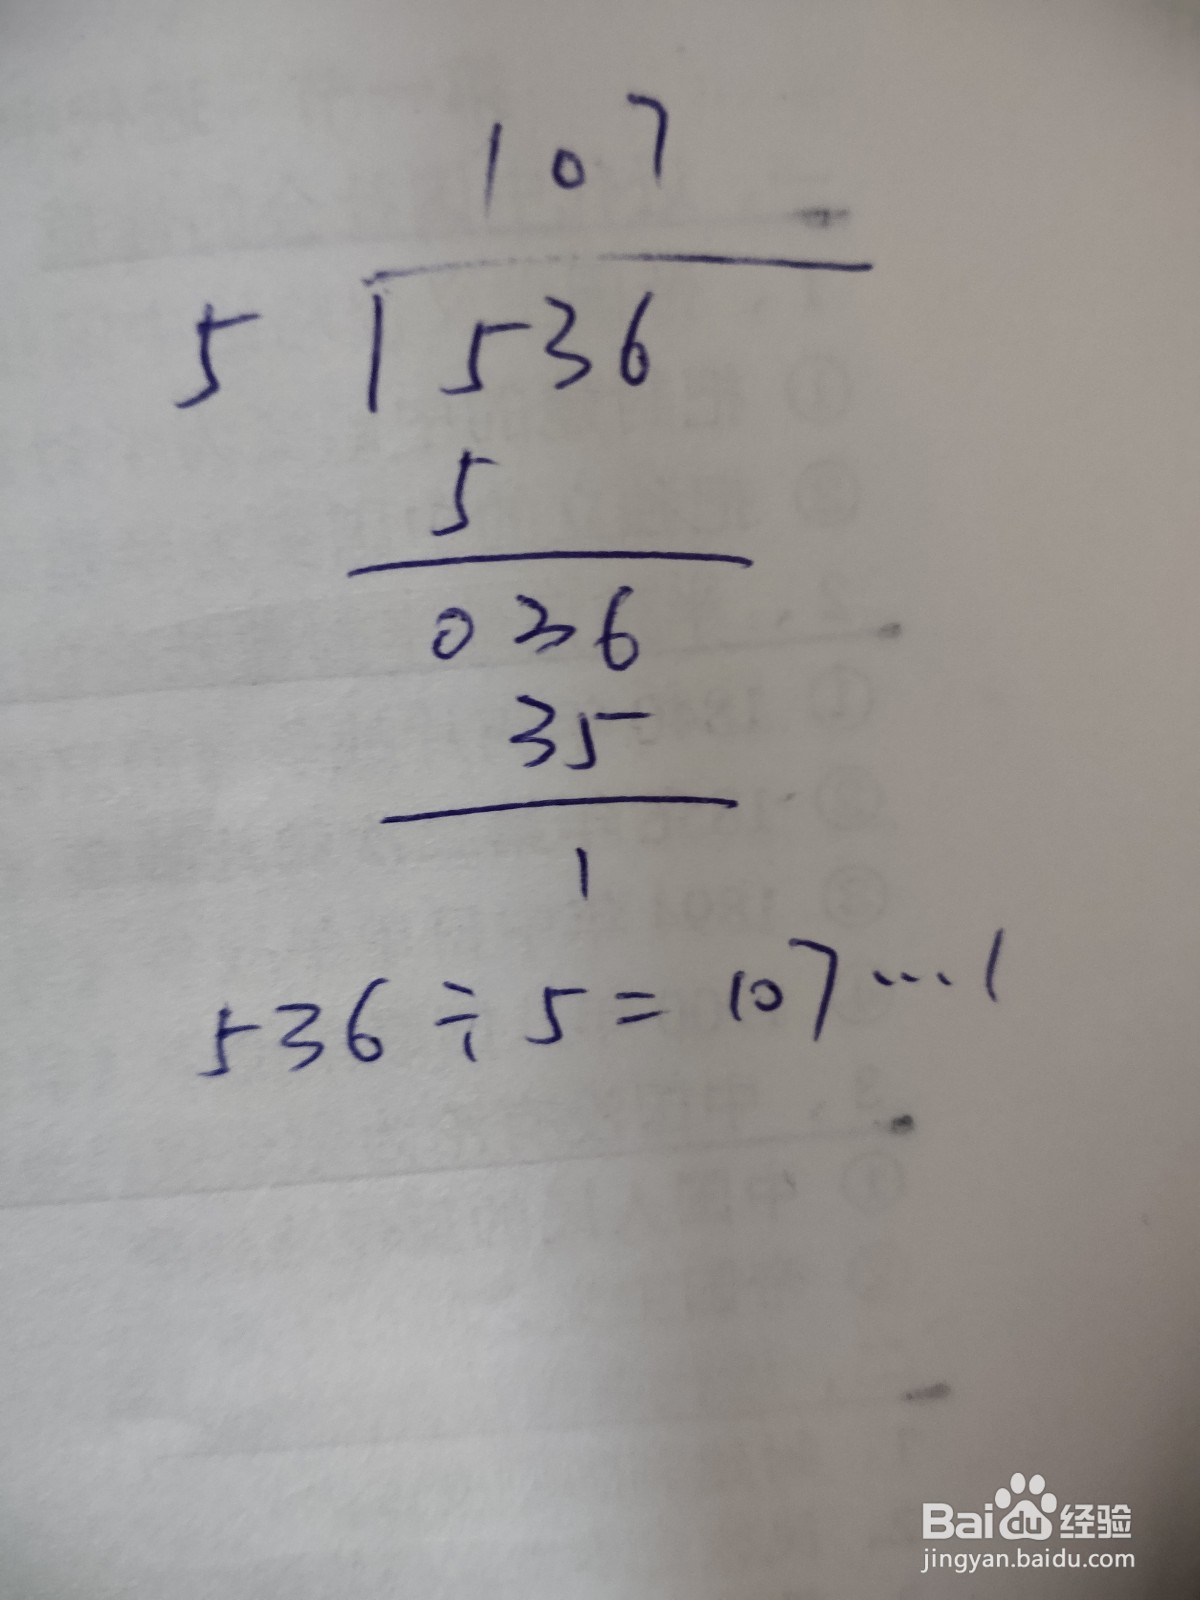 107
5 536
5
036
35
1
536÷5=107…1
Baidu 经验
jingyan.baidu.com